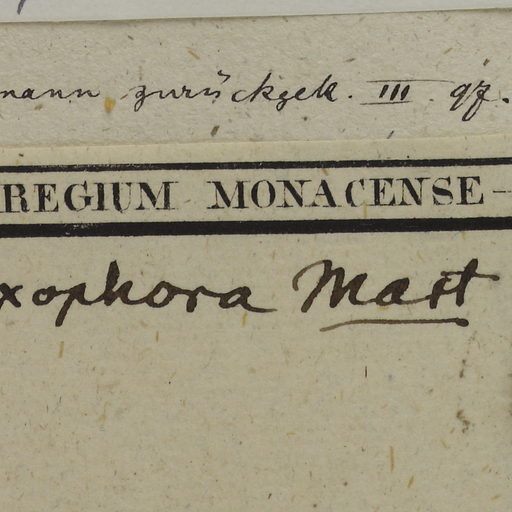 mann zurückgek. III. 97.
REGIUM MONACENSE
xophora Mart